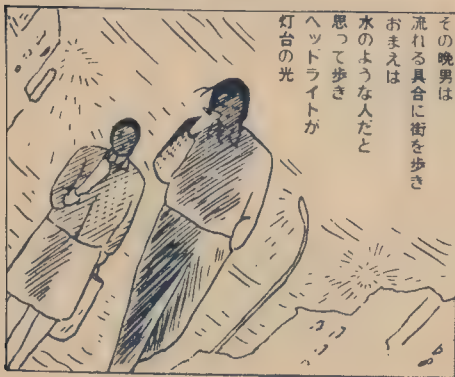 その晩男は
流れる具合に街を歩き
おまえは
水のような人だと
思って歩き
ヘッドライトが
灯台の光